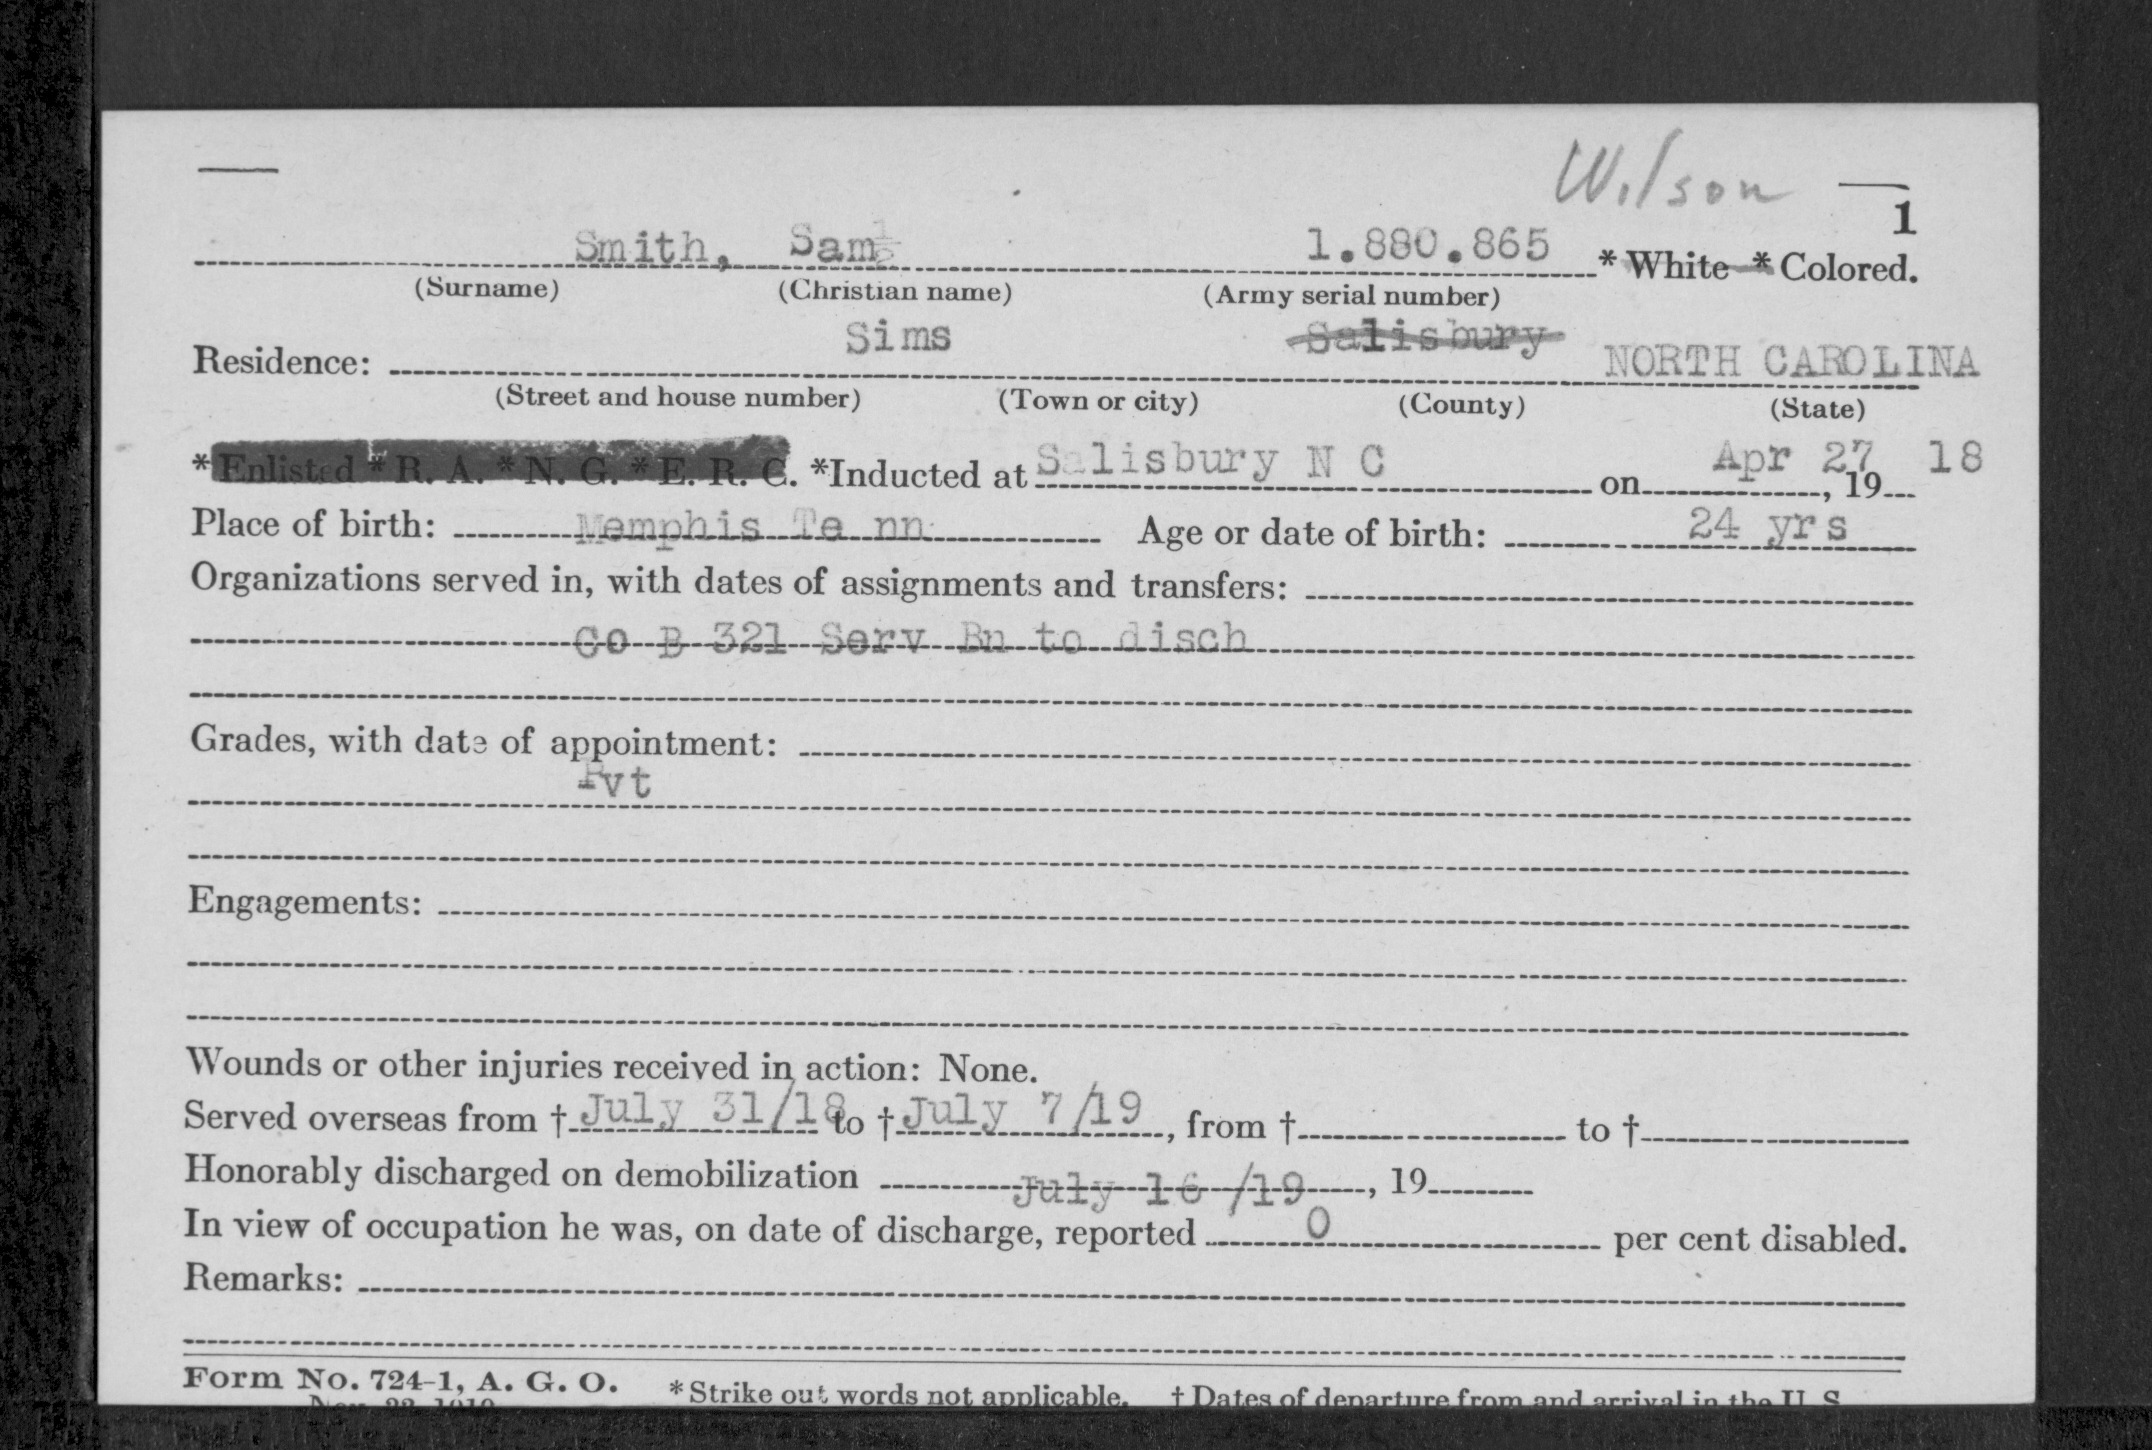 Wilson
1
Smith, Sam 1.880.865 * White * Colored.
(Surname) (Christian name) (Army serial number)
Sims Salisbury NORTH CAROLINA
Residence:
(Street and house number) (Town or city) (County) (State)
* Enlisted * R. A. * N. G. * E. R. C. *Inducted at Salisbury N C on Apr 27, 19 18
Place of birth: Memphis Te nn Age or date of birth: 24 yrs
Organizations served in, with dates of assignments and transfers:
Co B 321 Serv Bn to disch
Grades, with date of appointment:
Pvt
Engagements:
Wounds or other injuries received in action: None.
Served overseas from † July 31/18 to † July 7/19, from † to †
Honorably discharged on demobilization July 16/19, 19
In view of occupation he was, on date of discharge, reported 0 per cent disabled.
Remarks:
Form No. 724-1, A. G. O. * Strike out words not applicable. † Dates of departure from and arrival in the U. S.